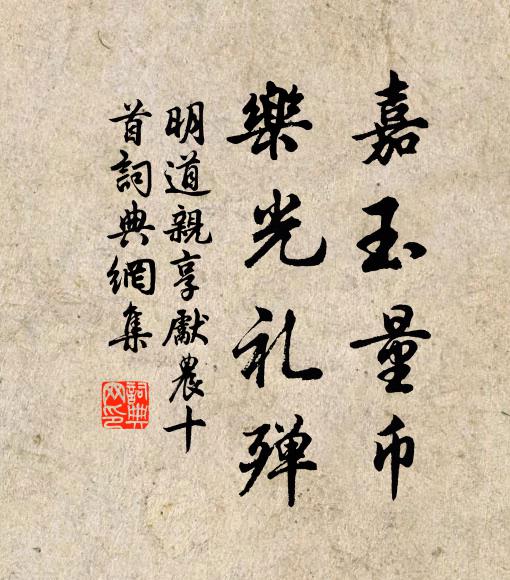 嘉玉量币
樂光礼殫
明道親享獻農十
首詞典網集
詞典网印